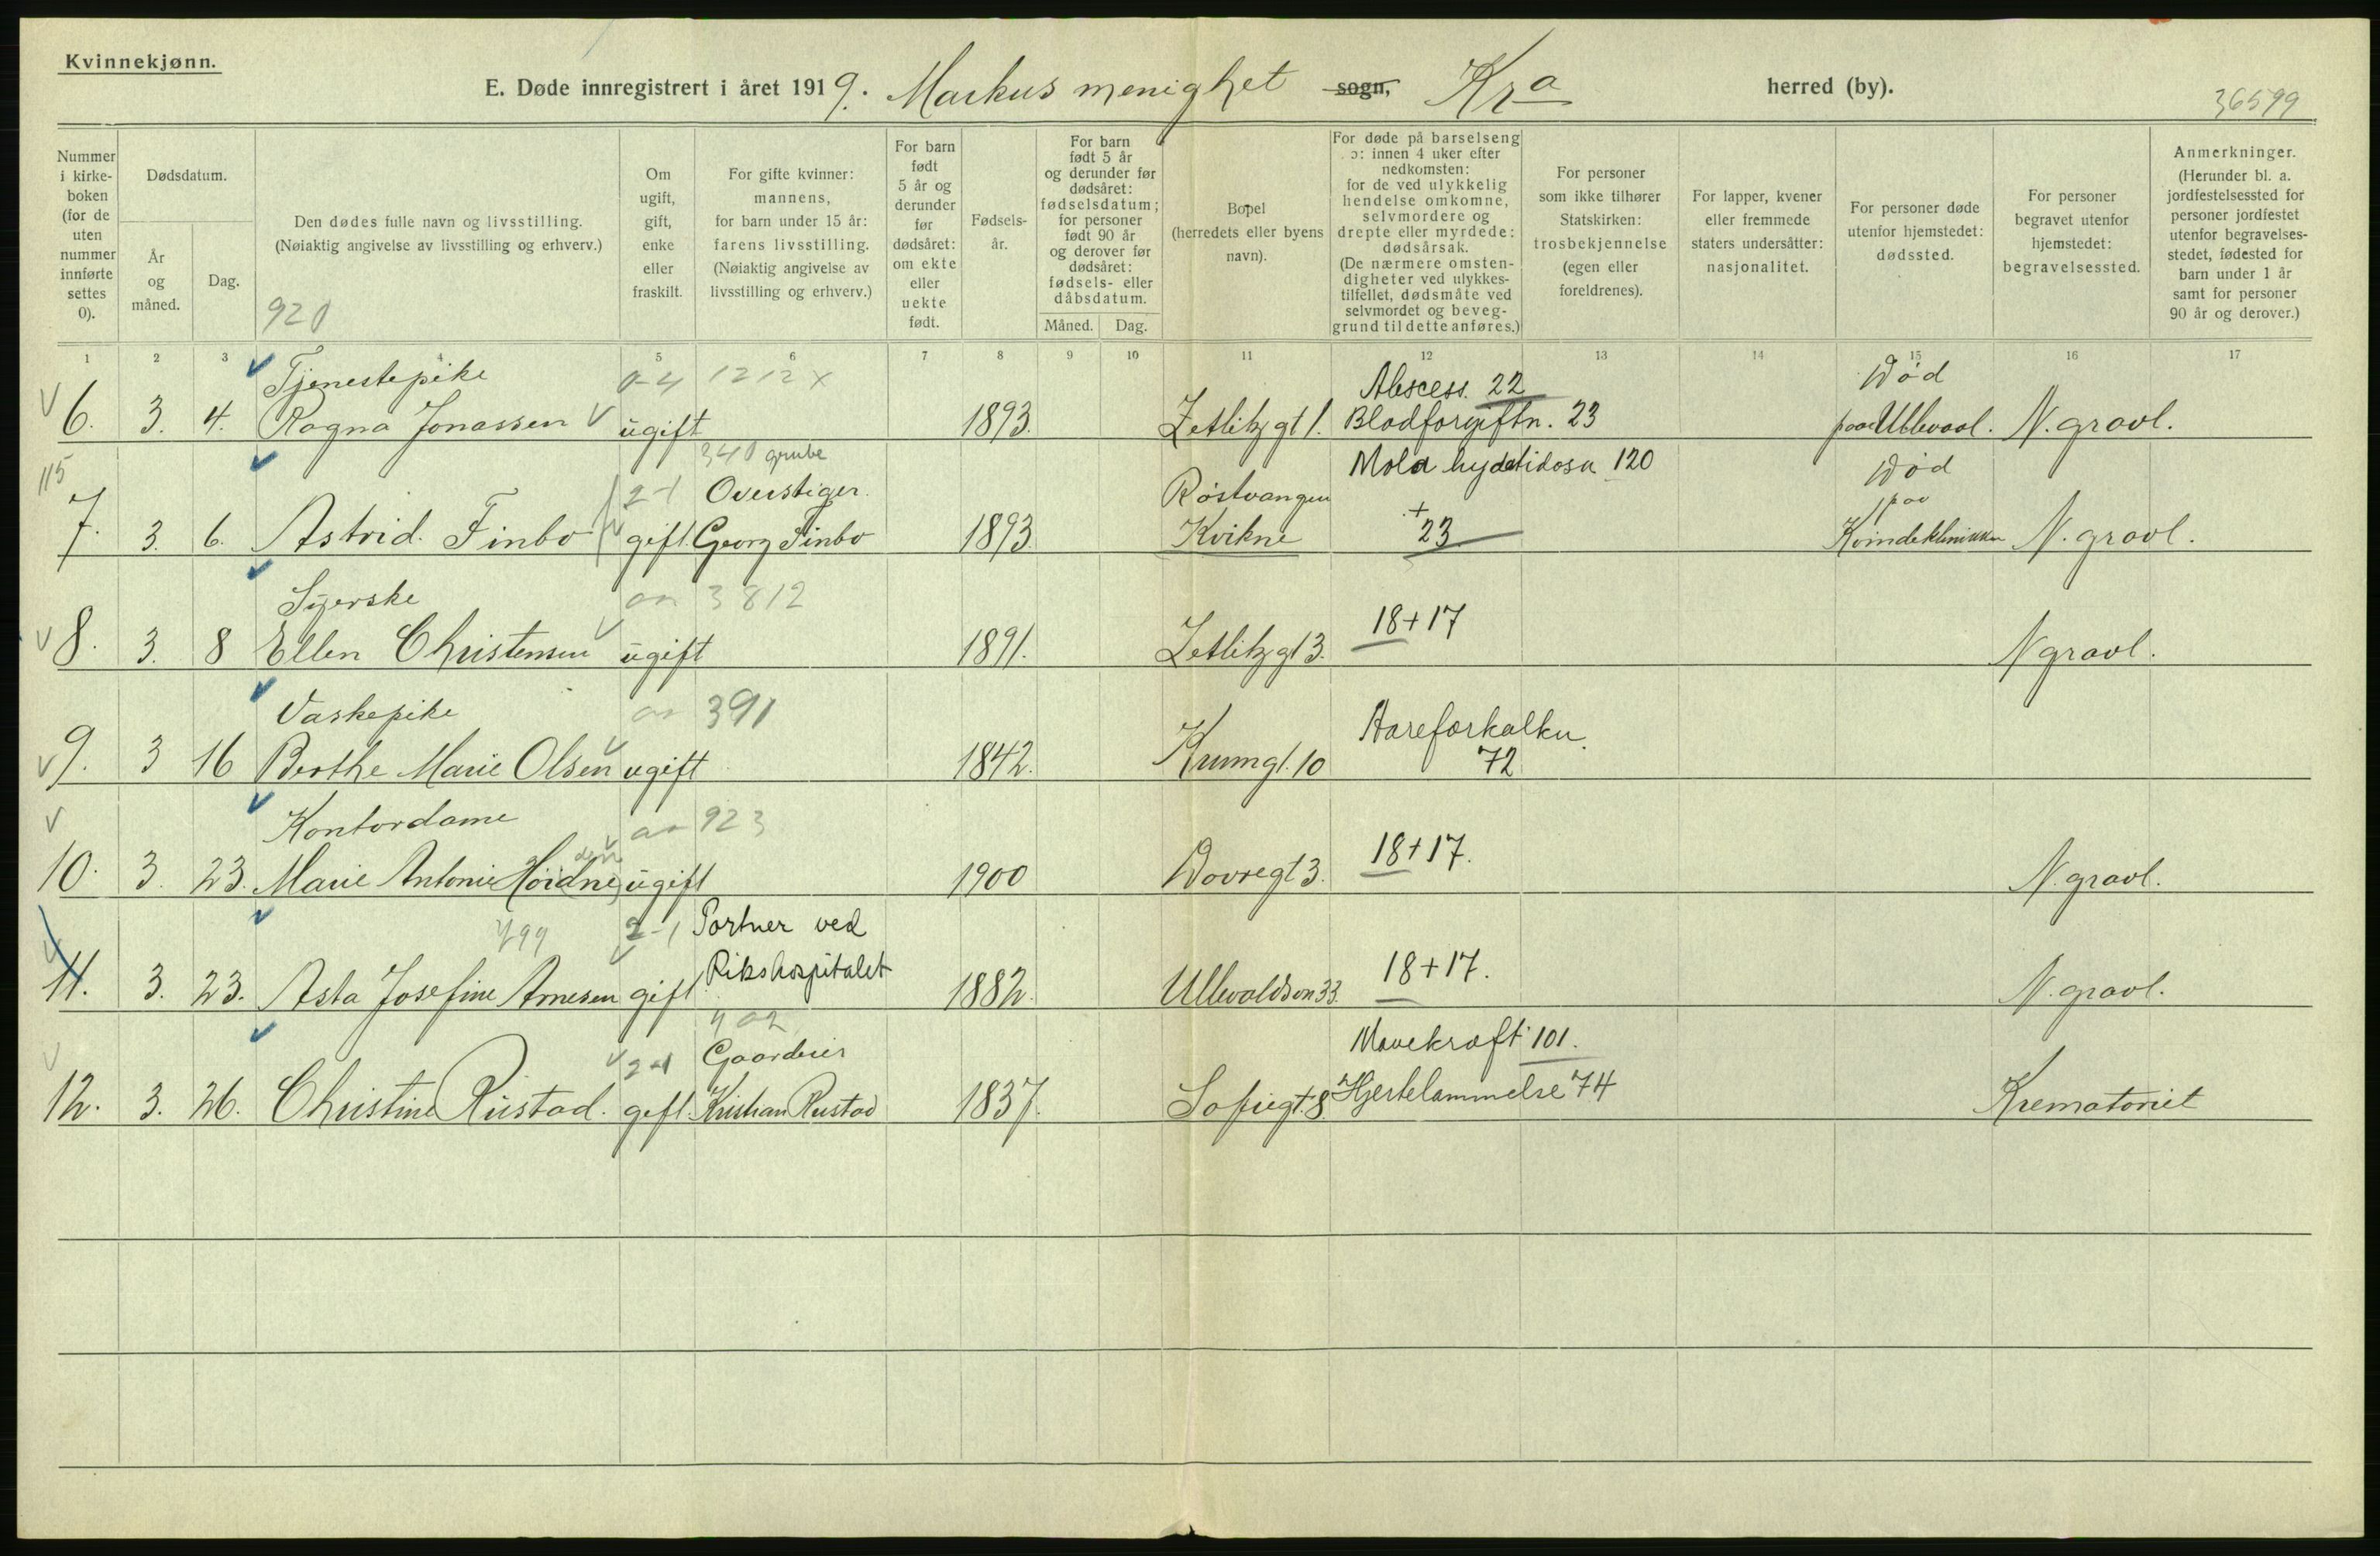 Kvinnekjønn.
E. Døde innregistrert i året 1919. Markus menighet sogn, Kra herred (by).
36599
Nummer i kirkeboken (for de uten nummer innførte settes 0).
Dødsdatum.
År og måned.
Dag.
Den dødes fulle navn og livsstilling.
(Nøiaktig angivelse av livsstilling og erhverv.)
920
Om ugift, gift, enke eller fraskilt.
For gifte kvinner: mannens, for barn under 15 år: farens livsstilling. (Nøiaktig angivelse av livsstilling og erhverv.)
For barn født 5 år og derunder før dødsåret: om ekte eller uekte født.
Fødselsår.
For barn født 5 år og derunder før dødsåret: fødselsdatum; for personer født 90 år og derover før dødsåret: fødsels- eller dåbsdatum.
Måned. Dag.
Bopel (herredets eller byens navn).
For døde på barselseng ɔ: innen 4 uker efter nedkomsten: for de ved ulykkelig hendelse omkomne, selvmordere og drepte eller myrdede: dødsårsak. (De nærmere omstendigheter ved ulykkestilfellet, dødsmåte ved selvmordet og beveggrund til dette anføres.)
For personer som ikke tilhører Statskirken: trosbekjennelse (egen eller foreldrenes).
For lapper, kvener eller fremmede staters undersåtter: nasjonalitet.
For personer døde utenfor hjemstedet: dødssted.
For personer begravet utenfor hjemstedet: begravelsessted.
Anmerkninger. (Herunder bl. a. jordfestelsessted for personer jordfestet utenfor begravelsesstedet, fødested for barn under 1 år samt for personer 90 år og derover.)
1 2 3 4 5 6 7 8 9 10 11 12 13 14 15 16 17
Tjenestepike 0-4 1212 x Abscess. 22 Død
6. 3. 4. Ragna Jonassen ugift 1893. Zetlitzgt 1. Blodforgiftn. 23 paa Ullevaal. N. gravl.
115 340 grube Mola hydatidosa 120 Død
2-1 Overstiger. Røstvangen + paa
7. 3. 6. Astrid Finbo gift. Georg Finbo 1893 Kvikne 23 Kvindeklinikken N. gravl.
Syerske 3812 18+17
8. 3. 8 Ellen Christensen ugift 1891. Zetlitzgt 3. N gravl.
Vaskepike 391 Aareforkalkn.
9. 3 16 Berthe Marie Olsen ugift 1842. Krumgt. 10 72
Kontordame 923 18+17.
10. 3. 23. Marie Antonie Höidne ugift 1900 Dovregt 3. N. gravl.
799 2-1 Portner ved 18+17.
11. 3. 23. Asta Josefine Arnesen gift Rikshospitalet 1882. Ullevaldsvn 33. N. gravl.
402 Mavekræft 101.
2-1 Gaardeier
12. 3. 26. Christine Rustad. gift. Kristian Rustad 1837. Sofiegt. 8. Hjertelammelse 74 Krematoriet